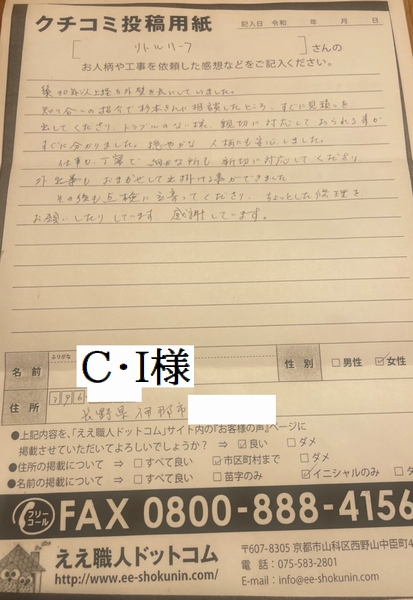 クチコミ投稿用紙
記入日 令和 年 月 日
[ リトルリーフ ] さんの
お人柄や工事を依頼した感想などをご記入ください。
築20年以上経ち外壁を
知り合いの紹介で杉本さんに相談したところ、すぐに見積りを
出してくださり、トラブルのない様、親切に対応しておられる事が
すぐに分かりました。穏やかな人柄にも安心しました。
仕事も丁寧で細かな所も親切に対応してくださり
外出等もおまかせして出掛ける事ができました
その後も点検に立寄ってくださり、ちょっとした修理を
お願いしたりしています 感謝しています。
ふりがな
名前 C・I様 性別 □男性 ☑女性
住所 396
長野県伊那市
●上記内容を、「ええ職人ドットコム」サイト内の『お客様の声』ページに
掲載させていただいてよろしいでしょうか? ⇒ ☑良い □ダメ
●住所の掲載について ⇒ □すべて良い ☑市区町村まで □ダメ
●名前の掲載について ⇒ □すべて良い □苗字のみ ☑イニシャルのみ □ダ
フリーコール FAX 0800-888-4156
ええ職人ドットコム
http://www.ee-shokunin.com/
〒607-8305 京都市山科区西野山中臣町4
電話:075-583-2801
E-mail:info@ee-shokunin.com